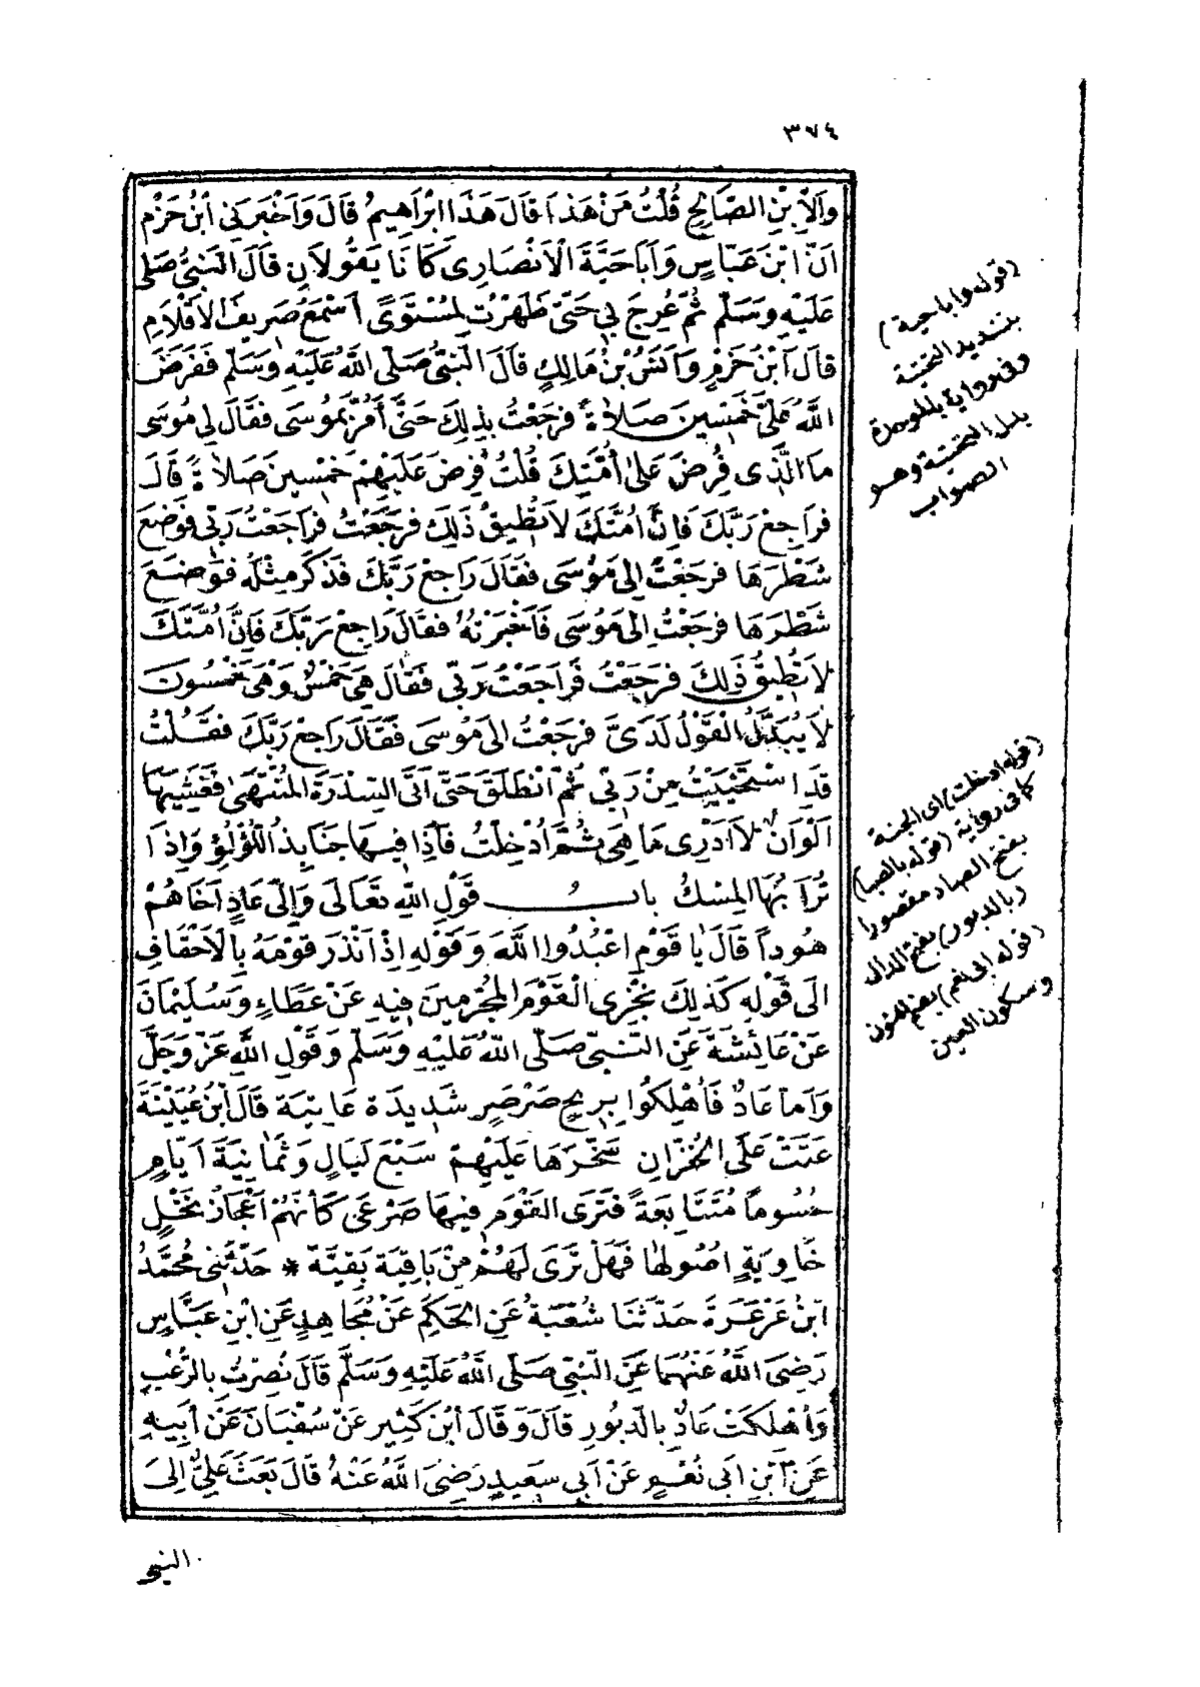 ٣٧٤
وَالْاِبْنِ الصَّالِحِ قُلْتُ مَنْ هَذَا قَالَ هَذَا اِبْرَاهِيمُ قَالَ وَاَخْبَرَنِي ابْنُ حَزْمٍ
اَنَّ ابْنَ عَبَّاسٍ وَاَبَا حَيَّةَ الْاَنْصَارِى كَانَا يَقُولَانِ قَالَ النَّبِىُّ صَلَّى
عَلَيْهِ وَسَلَّمَ ثُمَّ عُرِجَ بِي حَتَّى ظَهَرْتُ لِمُسْتَوًى اَسْمَعُ صَرِيفَ الْاَقْلَامِ
قَالَ ابْنُ حَزْمٍ وَاَنَسُ بْنُ مَالِكٍ قَالَ النَّبِىُّ صَلَّى اللَّهُ عَلَيْهِ وَسَلَّمَ فَفَرَضَ
اللَّهُ عَلَىَّ خَمْسِينَ صَلَاةً فَرَجَعْتُ بِذَلِكَ حَتَّى اَمُرَّ بِمُوسَى فَقَالَ لِي مُوسَى
مَا الَّذِى فُرِضَ عَلَى اُمَّتِكَ قُلْتُ فُرِضَ عَلَيْهِمْ خَمْسِينَ صَلَاةً قَالَ
فَرَاجِعْ رَبَّكَ فَاِنَّ اُمَّتَكَ لَا تُطِيقُ ذَلِكَ فَرَجَعْتُ فَرَاجَعْتُ رَبِّى فَوَضَعَ
شَطْرَهَا فَرَجَعْتُ اِلَى مُوسَى فَقَالَ رَاجِعْ رَبَّكَ فَذَكَرَ مِثْلَهُ فَوَضَعَ
شَطْرَهَا فَرَجَعْتُ اِلَى مُوسَى فَاَخْبَرْتُهُ فَقَالَ رَاجِعْ رَبَّكَ فَاِنَّ اُمَّتَكَ
لَا تُطِيقُ ذَلِكَ فَرَجَعْتُ فَرَاجَعْتُ رَبِّى فَقَالَ هِىَ خَمْسٌ وَهْىَ خَمْسُونَ
لَا يُبَدَّلُ الْقَوْلُ لَدَىَّ فَرَجَعْتُ اِلَى مُوسَى فَقَالَ رَاجِعْ رَبَّكَ فَقُلْتُ
قَدِ اسْتَحْيَيْتُ مِنْ رَبِّي ثُمَّ انْطَلَقَ حَتَّى اَتَى السِّدْرَةَ الْمُنْتَهَى فَغَشِيَهَا
اَلْوَانٌ لَا اَدْرِى مَا هِىَ ثُمَّ اُدْخِلْتُ فَاِذَا فِيهَا جَنَابِذُ اللُّؤْلُؤِ وَاِذَا
تُرَابُهَا الْمِسْكُ بابُ قَوْلِ اللَّهِ تَعَالَى وَاِلَى عَادٍ اَخَاهُمْ
هُوداً قَالَ يَا قَوْمِ اعْبُدُوا اللَّهَ وَقَوْلِهِ اِذْ اَنْذَرَ قَوْمَهُ بِالْاَحْقَافِ
اِلَى قَوْلِهِ كَذَلِكَ نَجْزِى الْقَوْمَ الْمُجْرِمِينَ فِيهِ عَنْ عَطَاءٍ وَسُلَيْمَانَ
عَنْ عَائِشَةَ عَنِ النَّبِىِّ صَلَّى اللَّهُ عَلَيْهِ وَسَلَّمَ وَقَوْلِ اللَّهِ عَزَّ وَجَلَّ
وَاَمَا عَادٌ فَاُهْلِكُوا بِرِيحٍ صَرْصَرٍ شَدِيدَةٍ عَاتِيَةٍ قَالَ ابْنُ عُيَيْنَةَ
عَتَتْ عَلَى الْخُزَّانِ سَخَّرَهَا عَلَيْهِمْ سَبْعَ لَيَالٍ وَثَمَانِيَةَ اَيَّامٍ
حُسُوماً مُتَتَابِعَةً فَتَرَى الْقَوْمَ فِيهَا صَرْعَى كَاَنَّهُمْ اَعْجَازُ نَخْلٍ
خَاوِيَةٍ اُصُولُهَا فَهَلْ تَرَى لَهُمْ مِنْ بَاقِيَةٍ بَقِيَّةٍ * حَدَّثَنِى مُحَمَّدُ
ابْنُ عَرْعَرَةَ حَدَّثَنَا شُعْبَةُ عَنِ الْحَكَمِ عَنْ مُجَاهِدٍ عَنِ ابْنِ عَبَّاسٍ
رَضِىَ اللَّهُ عَنْهُمَا عَنِ النَّبِىِّ صَلَّى اللَّهُ عَلَيْهِ وَسَلَّمَ قَالَ نُصِرْتُ بِالرُّعْبِ
وَاُهْلِكَتْ عَادٌ بِالدَّبُورِ قَالَ وَقَالَ ابْنُ كَثِيرٍ عَنْ سُفْيَانَ عَنْ اَبِيهِ
عَنِ ابْنِ اَبِى نُعْمٍ عَنْ اَبِى سَعِيدٍ رَضِىَ اللَّهُ عَنْهُ قَالَ بَعَثَ عَلِىٌّ اِلَى
(قوله وابا حية)
بتشديد التحتية
وفى رواية بالموحدة
بدل التحتية وهو
الصواب
(قوله ادخلت) اى الجنة
كما فى رواية (قوله بالصبا)
بفتح الصاد مقصورا
(بالدبور) بفتح الدال
(قوله ابى نعم) بضم النون
وسكون العين
النبي